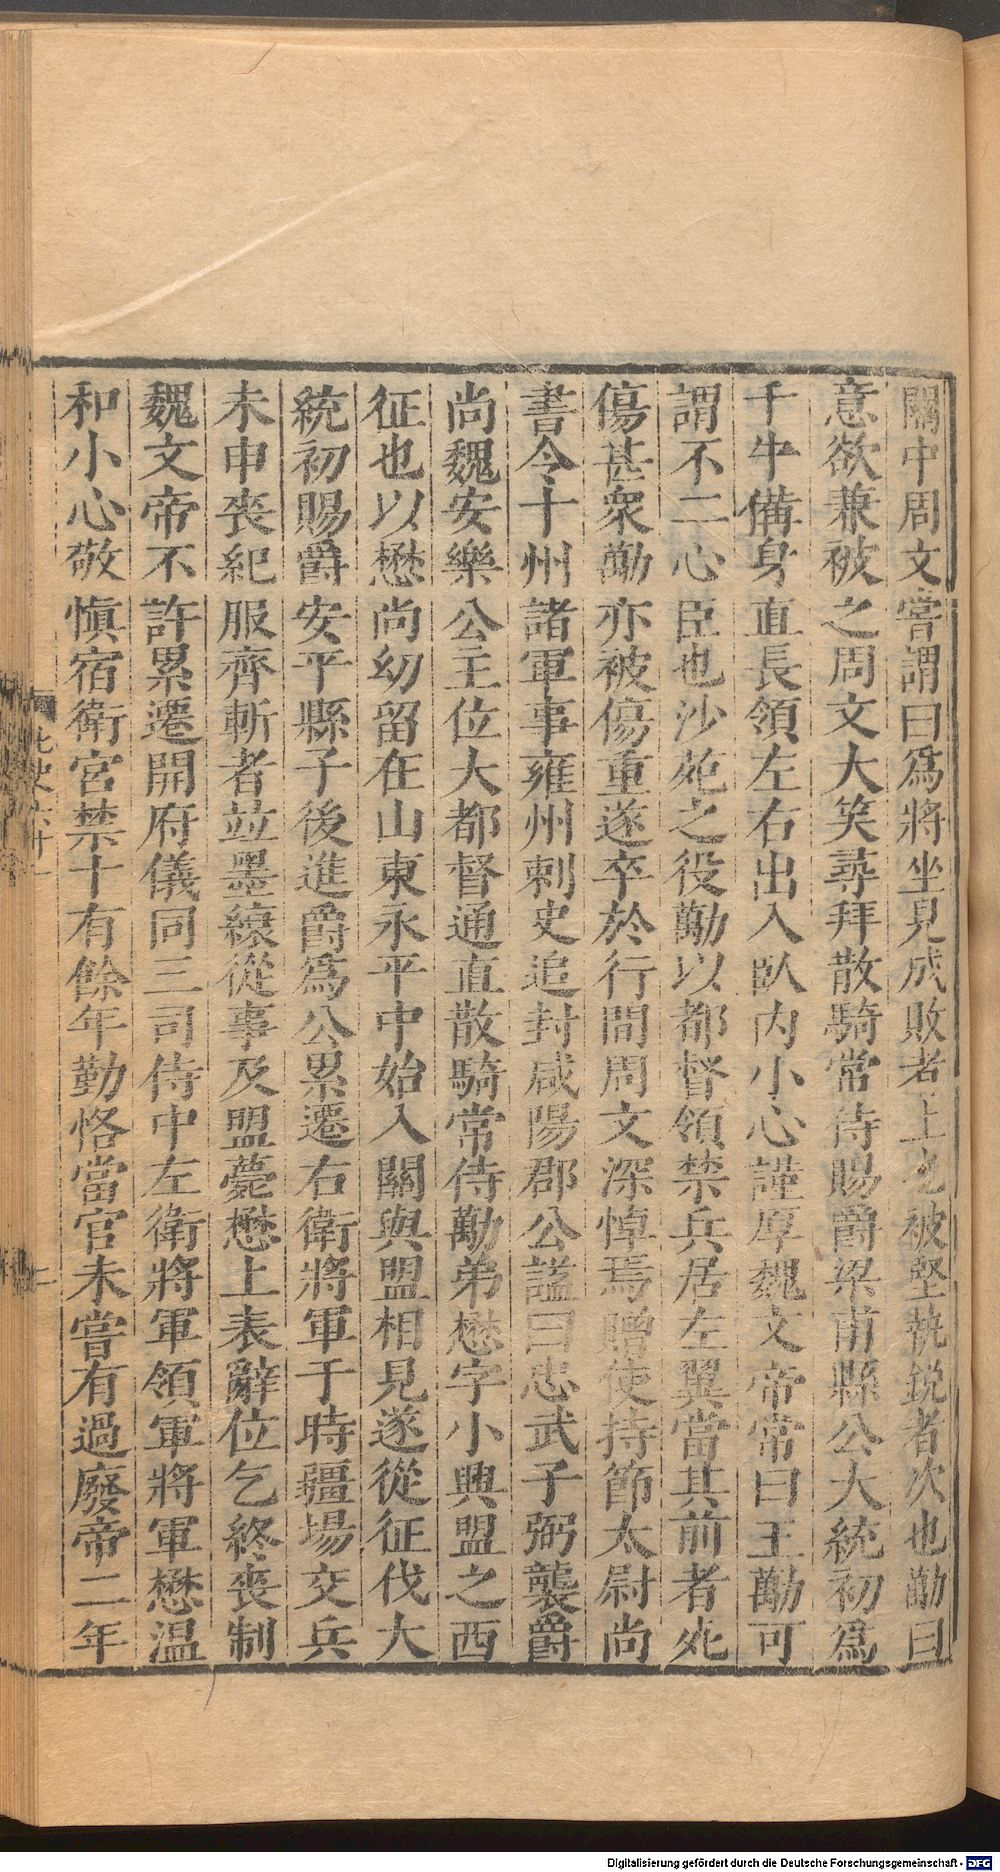 關中周文嘗謂曰爲將坐見成敗者上也被堅執銳者次也勱曰
意欲兼被之周文大笑尋拜散騎常侍賜爵梁甫縣公大統初爲
千牛備身直長領左右出入臥內小心謹厚魏文帝常曰王勱可
謂不二心臣也沙苑之役勱以都督領禁兵居左翼當其前者死
傷甚衆勱亦被傷重遂卒於行間周文深悼焉贈使持節太尉尚
書令十州諸軍事雍州刺史追封咸陽郡公諡曰忠武子弼襲爵
尚魏安樂公主位大都督通直散騎常侍勱弟懋字小興盟之西
征也以懋尚幼留在山東永平中始入關與盟相見遂從征伐大
統初賜爵安平縣子後進爵爲公累遷右衛將軍于時疆場交兵
未申喪紀服齊斬者竝墨縗從事及盟薨懋上表辭位乞終喪制
魏文帝不許累遷開府儀同三司侍中左衛將軍領軍將軍懋温
和小心敬愼宿衛宮禁十有餘年勤恪當官未嘗有過廢帝二年
北史六十一
二
Digitalisierung gefördert durch die Deutsche Forschungsgemeinschaft - DFG